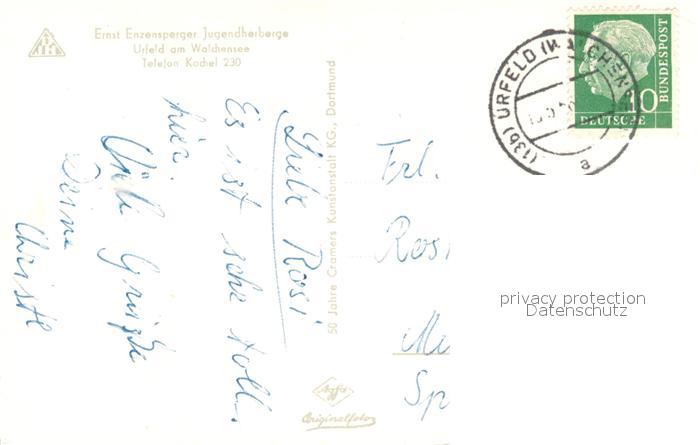 Ernst Enzensperger Jugendherberge
Urfeld am Walchensee
Telefon Kochel 230
Liebe Rosi
Es ist sehr toll
hier.
Viele Grüße
Deine
Christl
50 Jahre Cramers Kunstanstalt KG., Dortmund
Agfa
Originalfoto
(13b) URFELD (WALCHEN
a
10
BUNDESPOST
DEUTSCHE
Frl.
Rosi
Mü
Sp
privacy protection
Datenschutz